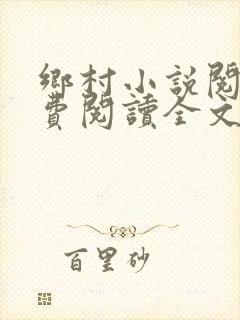 鄉村小說閱
費閱讀全文
百里砂